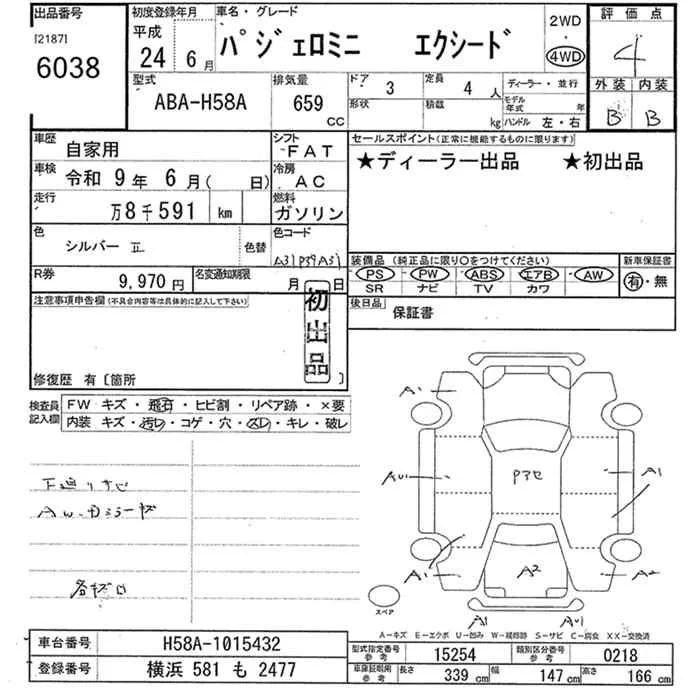 出品番号
[2187]
6038
初度登録年月
平成
24 6月
車名・グレード
パジェロミニ エクシード
2WD
・
4WD
評価点
4
外装 内装
B B
型式
ABA-H58A
排気量
659
CC
ドア 3
定員 4 人
形状
積載 kg
ディーラー・並行
モデル年式 年
ハンドル 左・右
車歴 自家用
シフト FAT
車検 令和 9年 6月( 日)
冷房 AC
走行 万8千591 km
燃料 ガソリン
色 シルバー II 色替
色コード
R券 9,970円
名変通知期限 月 日
セールスポイント(正常に機能するものに限ります)
★ディーラー出品 ★初出品
装備品(純正品に限り〇をつけてください)
PS PW ABS エアB AW
SR ナビ TV カワ
新車保証書
有・無
後日品 保証書
注意事項申告欄(不具合内容等は具体的に記入して下さい)
初出品
修復歴 有〔箇所 〕
検査員記入欄
FW キズ・飛石・ヒビ割・リペア跡・×要
内装 キズ・汚レ・コゲ・穴・スレ・キレ・破レ
下廻りサビ
AW・カミラーキズ
各キズ凹
A1
AU1
A1
A1
A2
A2
A1
AU1
スペア
A-キズ E-エクボ U-凹み W-補修跡 S-サビ C-腐食 XX-交換済
車台番号 H58A-1015432
登録番号 横浜 581 も 2477
型式指定番号 参考 15254
類別区分番号 参考 0218
車庫証明用 参考 長さ 339 cm 幅 147 cm 高さ 166 cm